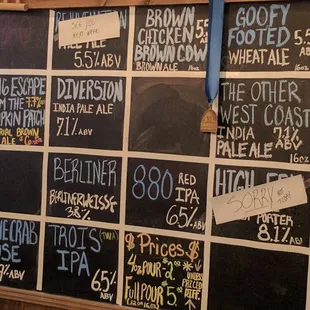 5.5% ABV
BROWN
CHICKEN
BROWN COW
BROWN ALE
5.5%
16oz
GOOFY
FOOTED
WHEAT ALE
ESCAPE
FROM THE
PUMPKIN PATCH
7.7%
BROWN ALE
DIVERSION
INDIA PALE ALE
7.1% ABV
THE OTHER
WEST COAST
INDIA
PALE ALE
7.1%
ABV
16oz
BERLINER
BERLINERWEISSE
3.8% ABV
880 RED
IPA
6.5% ABV
HIGH
SORRY
PORTER
8.1% ABV
TROIS
IPA
6.5%
ABV
$Prices$
4oz POUR-2
Full POUR $5
UNLESS
PRICED
DIFF